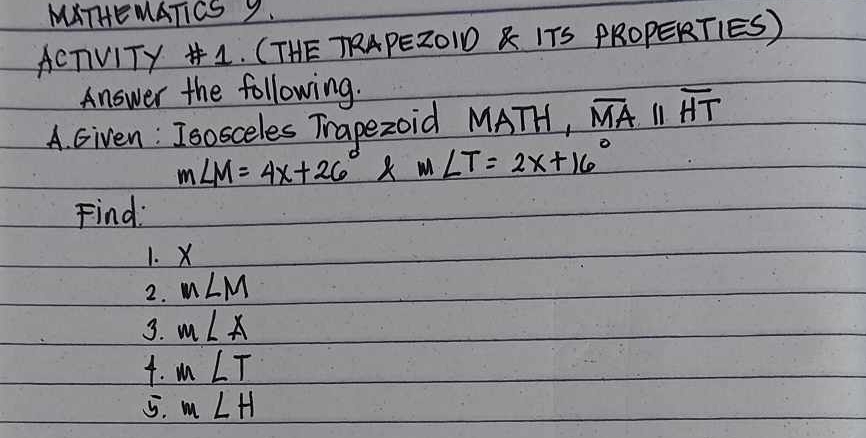 MATHEMATICS 9.
ACTIVITY #1. (THE TRAPEZOID & ITS PROPERTIES)
Answer the following.
A. Given : Isosceles Trapezoid MATH, M̅A̅ || H̅T̅
m∠M = 4x+26° & m∠T = 2x+16°
Find:
1. X
2. m∠M
3. m∠A
4. m∠T
5. m∠H